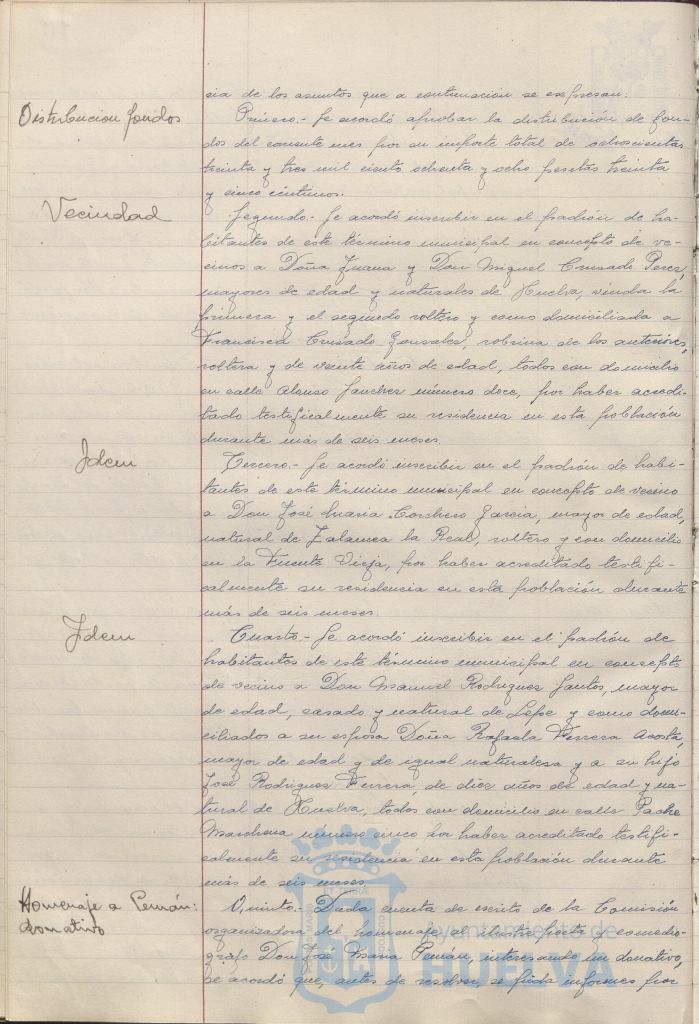 cia de los asuntos que a continuación se expresan:
Distribucion fondos
Primero.- Se acordó aprobar la distribución de fon-
dos del corriente mes por su importe total de ochocientas
treinta y tres mil ciento ochenta y ocho pesetas treinta
y cinco céntimos.
Vecindad
Segundo.- Se acordó inscribir en el padrón de ha-
bitantes de este término municipal en concepto de ve-
cinos a Doña Juana y Don Miguel Crusado Perez,
mayores de edad y naturales de Huelva, viuda la
primera y el segundo soltero y como domiciliada a
Francisca Crusado Gonzales, sobrina de los anteriores,
soltera y de veinte años de edad, todos con domicilio
en calle Alonso Sanchez número doce, por haber acredi-
tado testificalmente su residencia en esta población
durante más de seis meses.
Idem
Tercero.- Se acordó inscribir en el padrón de habi-
tantes de este término municipal en concepto de vecino
a Don José Maria Corchero Garcia, mayor de edad,
natural de Zalamea la Real, soltero y con domicilio
en la Fuente Vieja, por haber acreditado testifi-
calmente su residencia en esta población durante
más de seis meses.
Idem
Cuarto.- Se acordó inscribir en el padrón de
habitantes de este término municipal en concepto
de vecino a Don Manuel Rodriguez Santos, mayor
de edad, casado y natural de Lepe y como domi-
ciliados a su esposa Doña Rafaela Ferrera Acosta,
mayor de edad y de igual naturaleza y a su hijo
José Rodriguez Ferrera, de diez años de edad y na-
tural de Huelva, todos con domicilio en calle Padre
Marchena número cinco por haber acreditado testifi-
calmente su residencia en esta población durante
más de seis meses.
Homenaje a Pemán:
donativo
Quinto.- Dada cuenta de escrito de la Comisión
organizadora del homenaje al ilustre poeta y comedió-
grafo Don José Maria Pemán, interesando un donativo,
se acordó que, antes de resolver, se pida informes por
Ayuntamiento de
HUELVA